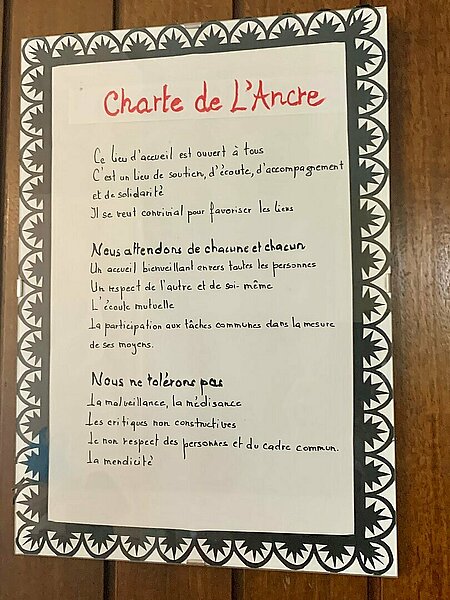 Charte de L'Ancre
Ce lieu d'accueil est ouvert à tous
C'est un lieu de soutien, d'écoute, d'accompagnement
et de solidarité
Il se veut convivial pour favoriser les liens
Nous attendons de chacune et chacun
Un accueil bienveillant envers toutes les personnes
Un respect de l'autre et de soi-même
L'écoute mutuelle
La participation aux tâches communes dans la mesure
de ses moyens.
Nous ne tolérons pas
La malveillance, la médisance
Les critiques non constructives
Le non respect des personnes et du cadre commun.
La mendicité